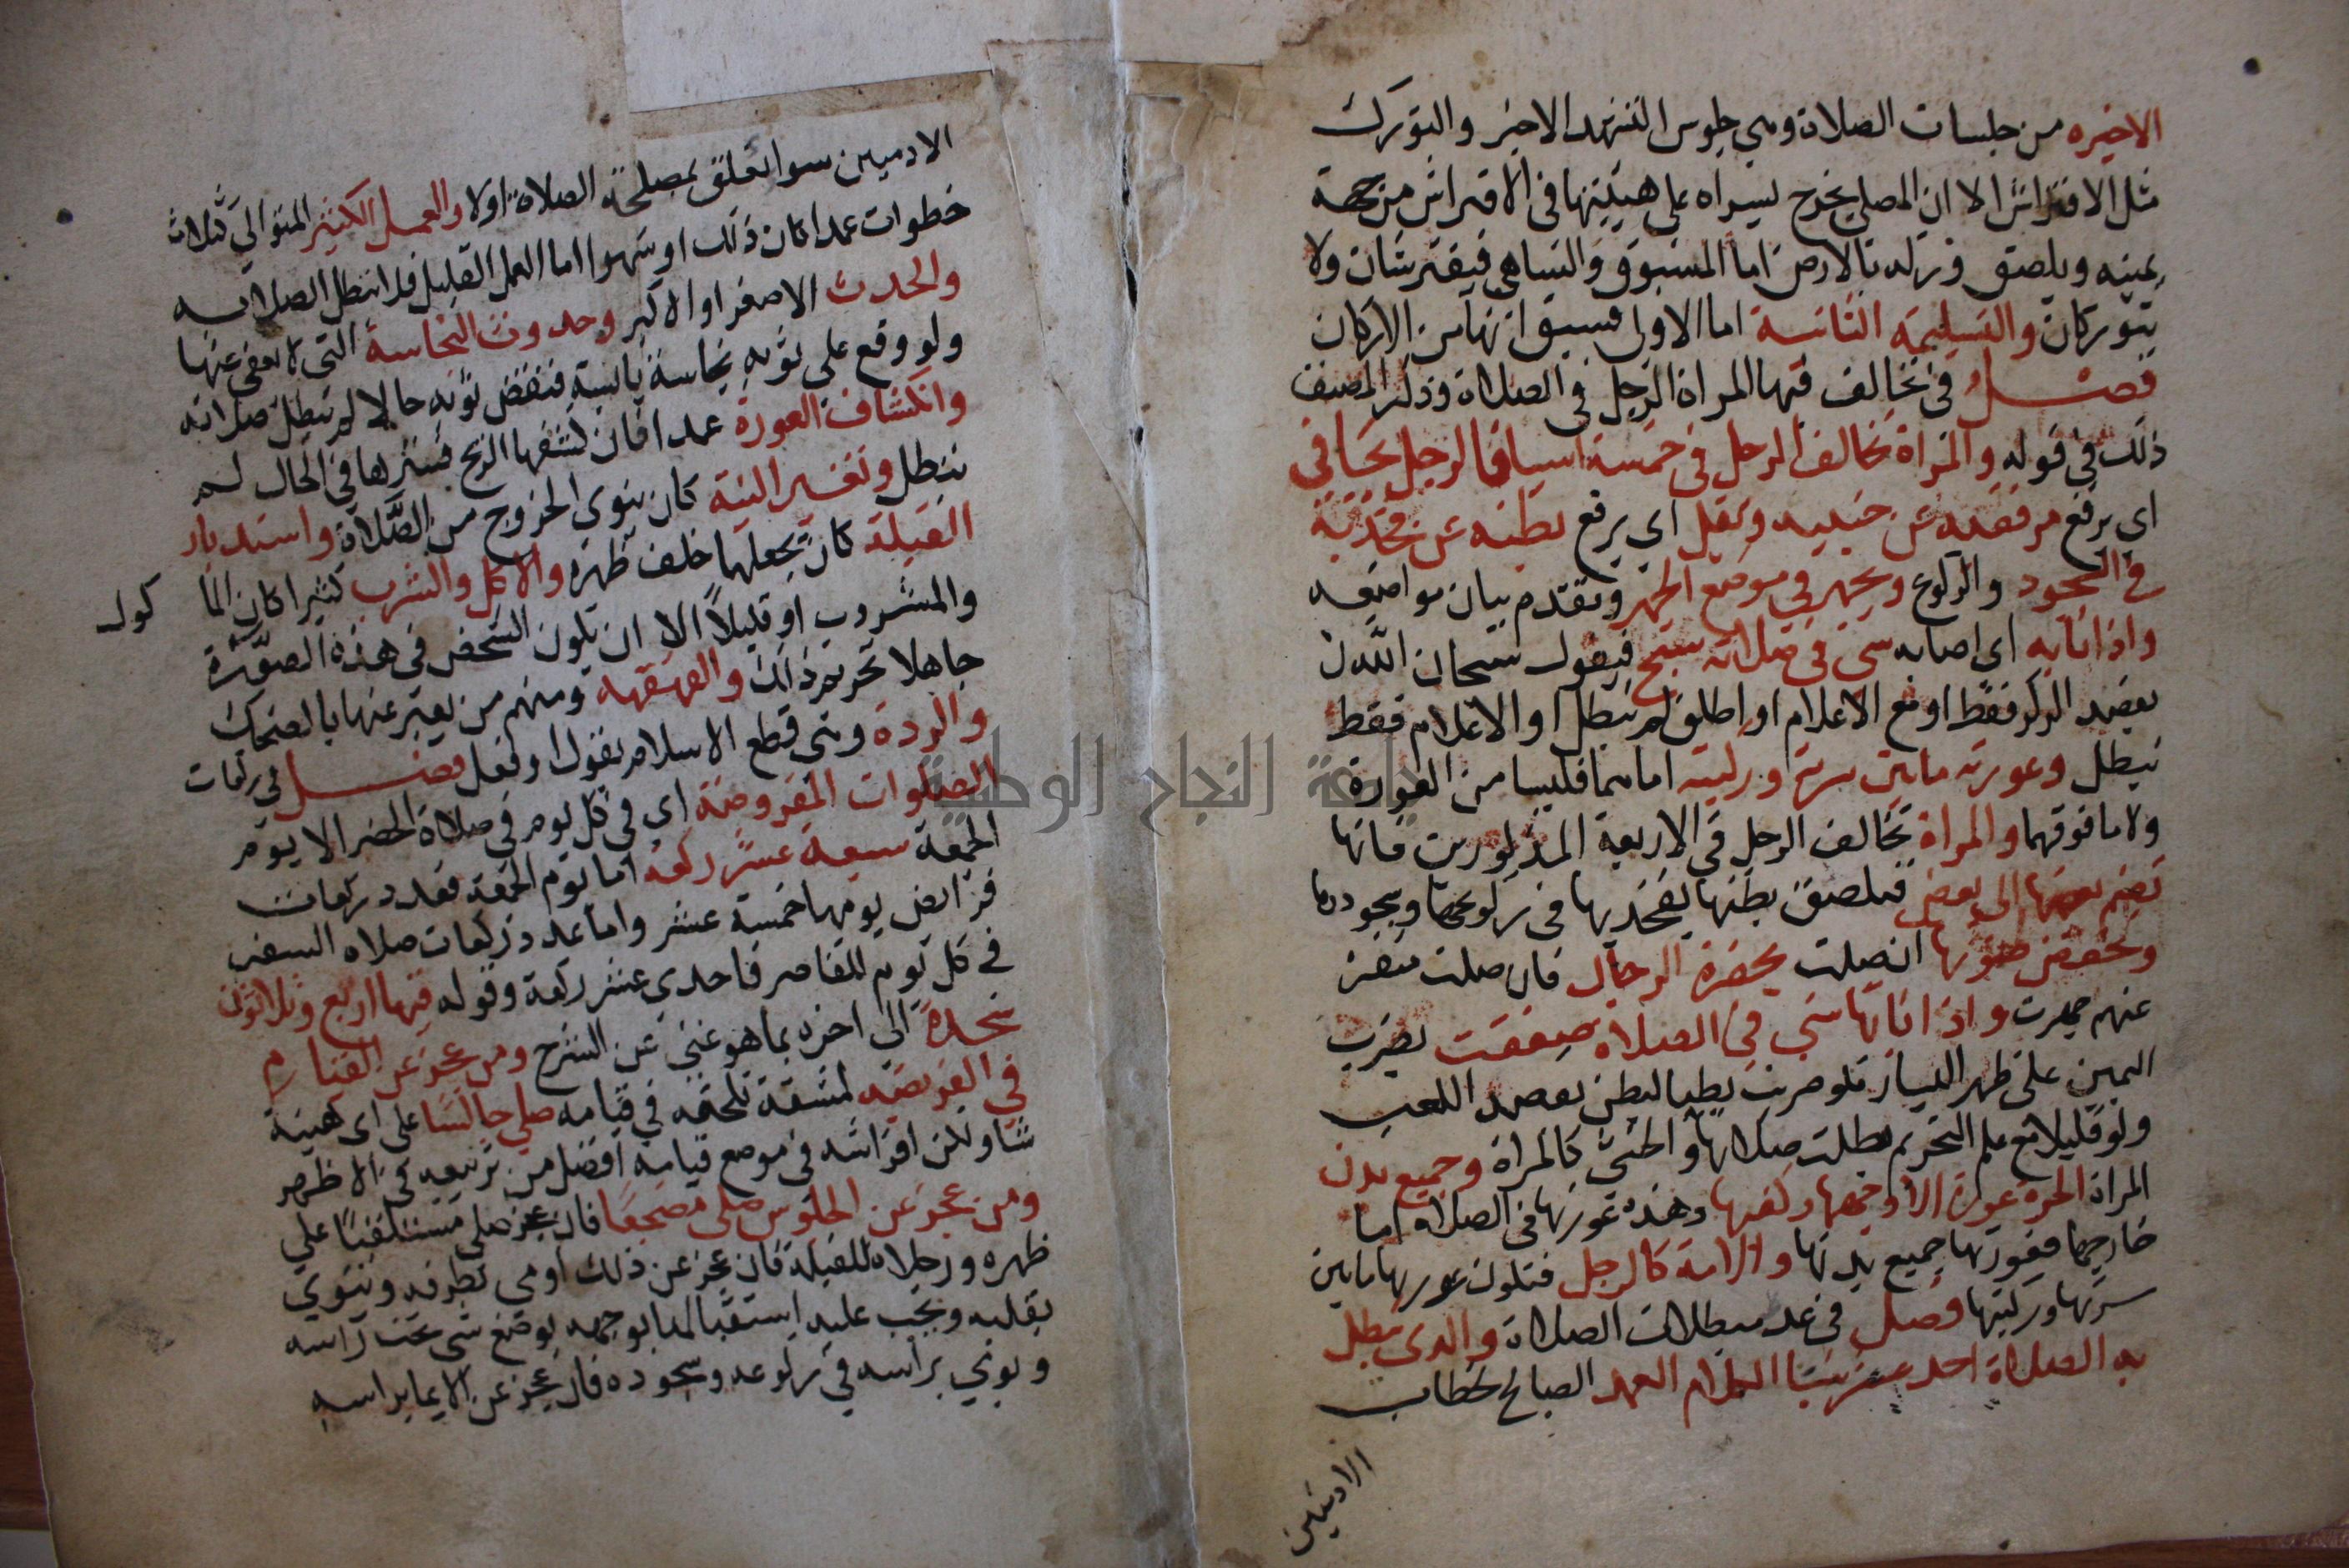 الاخيره من جلسات الصلاة وهي جلوس التشهد الاخير والتورك
مثل الافتراش الا ان المصلي يخرج يسراه علي هيئتها في الافتراش من جهة
يمينه ويلصق وركه بالارض اما المسبوق والساهي فيفترشان ولا
يتوركان والتسليمة الثانية اما الاولي فسبق انها من الاركان
فصل في تخالف فيها المراة الرجل في الصلاة وذكر المصنف
ذلك في قوله والمراة تخالف الرجل في خمسة اشيا فالرجل يجافي
اي يرفع مرفقيه عن جنبيه ويقل اي يرفع بطنه عن فخذيه
في السجود والركوع ويجهر في موضع الجهر وتقدم بيان مواضعه
واذا نابه اي اصابه شي في صلاته سبح فيقول سبحان الله
بقصد الذكر فقط او مع الاعلام او اطلق لم تبطل او الاعلام فقط
تبطل وعورته ما بين سرته وركبته اما هما فليسا من العورة
ولا ما فوقهما والمراة تخالف الرجل في الاربعة المذكورين فانها
تضم بعضها الي بعض فتلصق بطنها بفخذيها في ركوعها وسجودها
وتخفض صوتها ان صلت بحضرة الرجال فان صلت منفرد
عنهم جهرت واذا نابها شي في الصلاة صفقت بضرب
اليمين علي ظهر اليسار فلو ضربت بطنا لبطن بقصد اللعب
ولو قليلا مع علم التحريم بطلت صلاتها والخنثي كالمراة وجميع بدن
المراة الحرة عورة الا وجهها وكفيها وهذه عورتها في الصلاة اما
خارجها فعورتها جميع بدنها والامة كالرجل فتكون عورتها ما بين
سرتها وركبتها فصل في عدد مبطلات الصلاة والذي تبطل
به الصلاة احد عشر شيا الكلام العمد الصالح لخطاب
الادميين
الادميين سوا تعلق بمصلحة الصلاة اولا والعمل الكثير المتوالي كثلاث
خطوات عمدا كان ذلك او سهوا اما العمل القليل فلا تبطل الصلاة به
والحدث الاصغر او الاكبر وحدوث النجاسة التي لا يعفي عنها
ولو وقع علي ثوبه نجاسة يابسة فنفض ثوبه حالا لم تبطل صلاته
وانكشاف العورة عمدا فان كشفها الريح فسترها في الحال لم
تبطل وتغيير النية كان ينوي الخروج من الصلاة واستدبار
القبلة كان يجعلها خلف ظهره والاكل والشرب كثيرا كان الما
كول
والمشروب او قليلا الا ان يكون الشخص في هذه الصورة
جاهلا تحريم ذلك والقهقهة ومنهم من يعبر عنها بالضحك
والردة وهي قطع الاسلام بقول او فعل فصل في ركعات
الصلوات المفروضة اي في كل يوم في صلاة الحضر الا يوم
الجمعة سبعة عشر ركعة اما يوم الجمعة فعدد ركعات
فرائض يومها خمسة عشر واما عدد ركعات صلاه السفر
في كل يوم للقاصر فاحدي عشر ركعة وقوله فيها اربع وثلاثون
سجدة الي اخره بما هو غني عن الشرح ومن عجز عن القيام
في الفريضه لمشقة تلحقه في قيامه صلي جالسا علي اي هيئة
شا ولكن افتراشه في موضع قيامه افضل من تربيعه في الاظهر
ومن عجز عن الجلوس صلي مضجعا فان عجز صلي مستلقيا علي
ظهره ورجلاه للقبلة فان عجز عن ذلك اومي بطرفه وينوي
بقلبه ويجب عليه استقبالها بوجهه بوضع شي تحت راسه
ويومي براسه في ركوعه وسجوده فان عجز عن الايما براسه
جامعة النجاح الوطنية